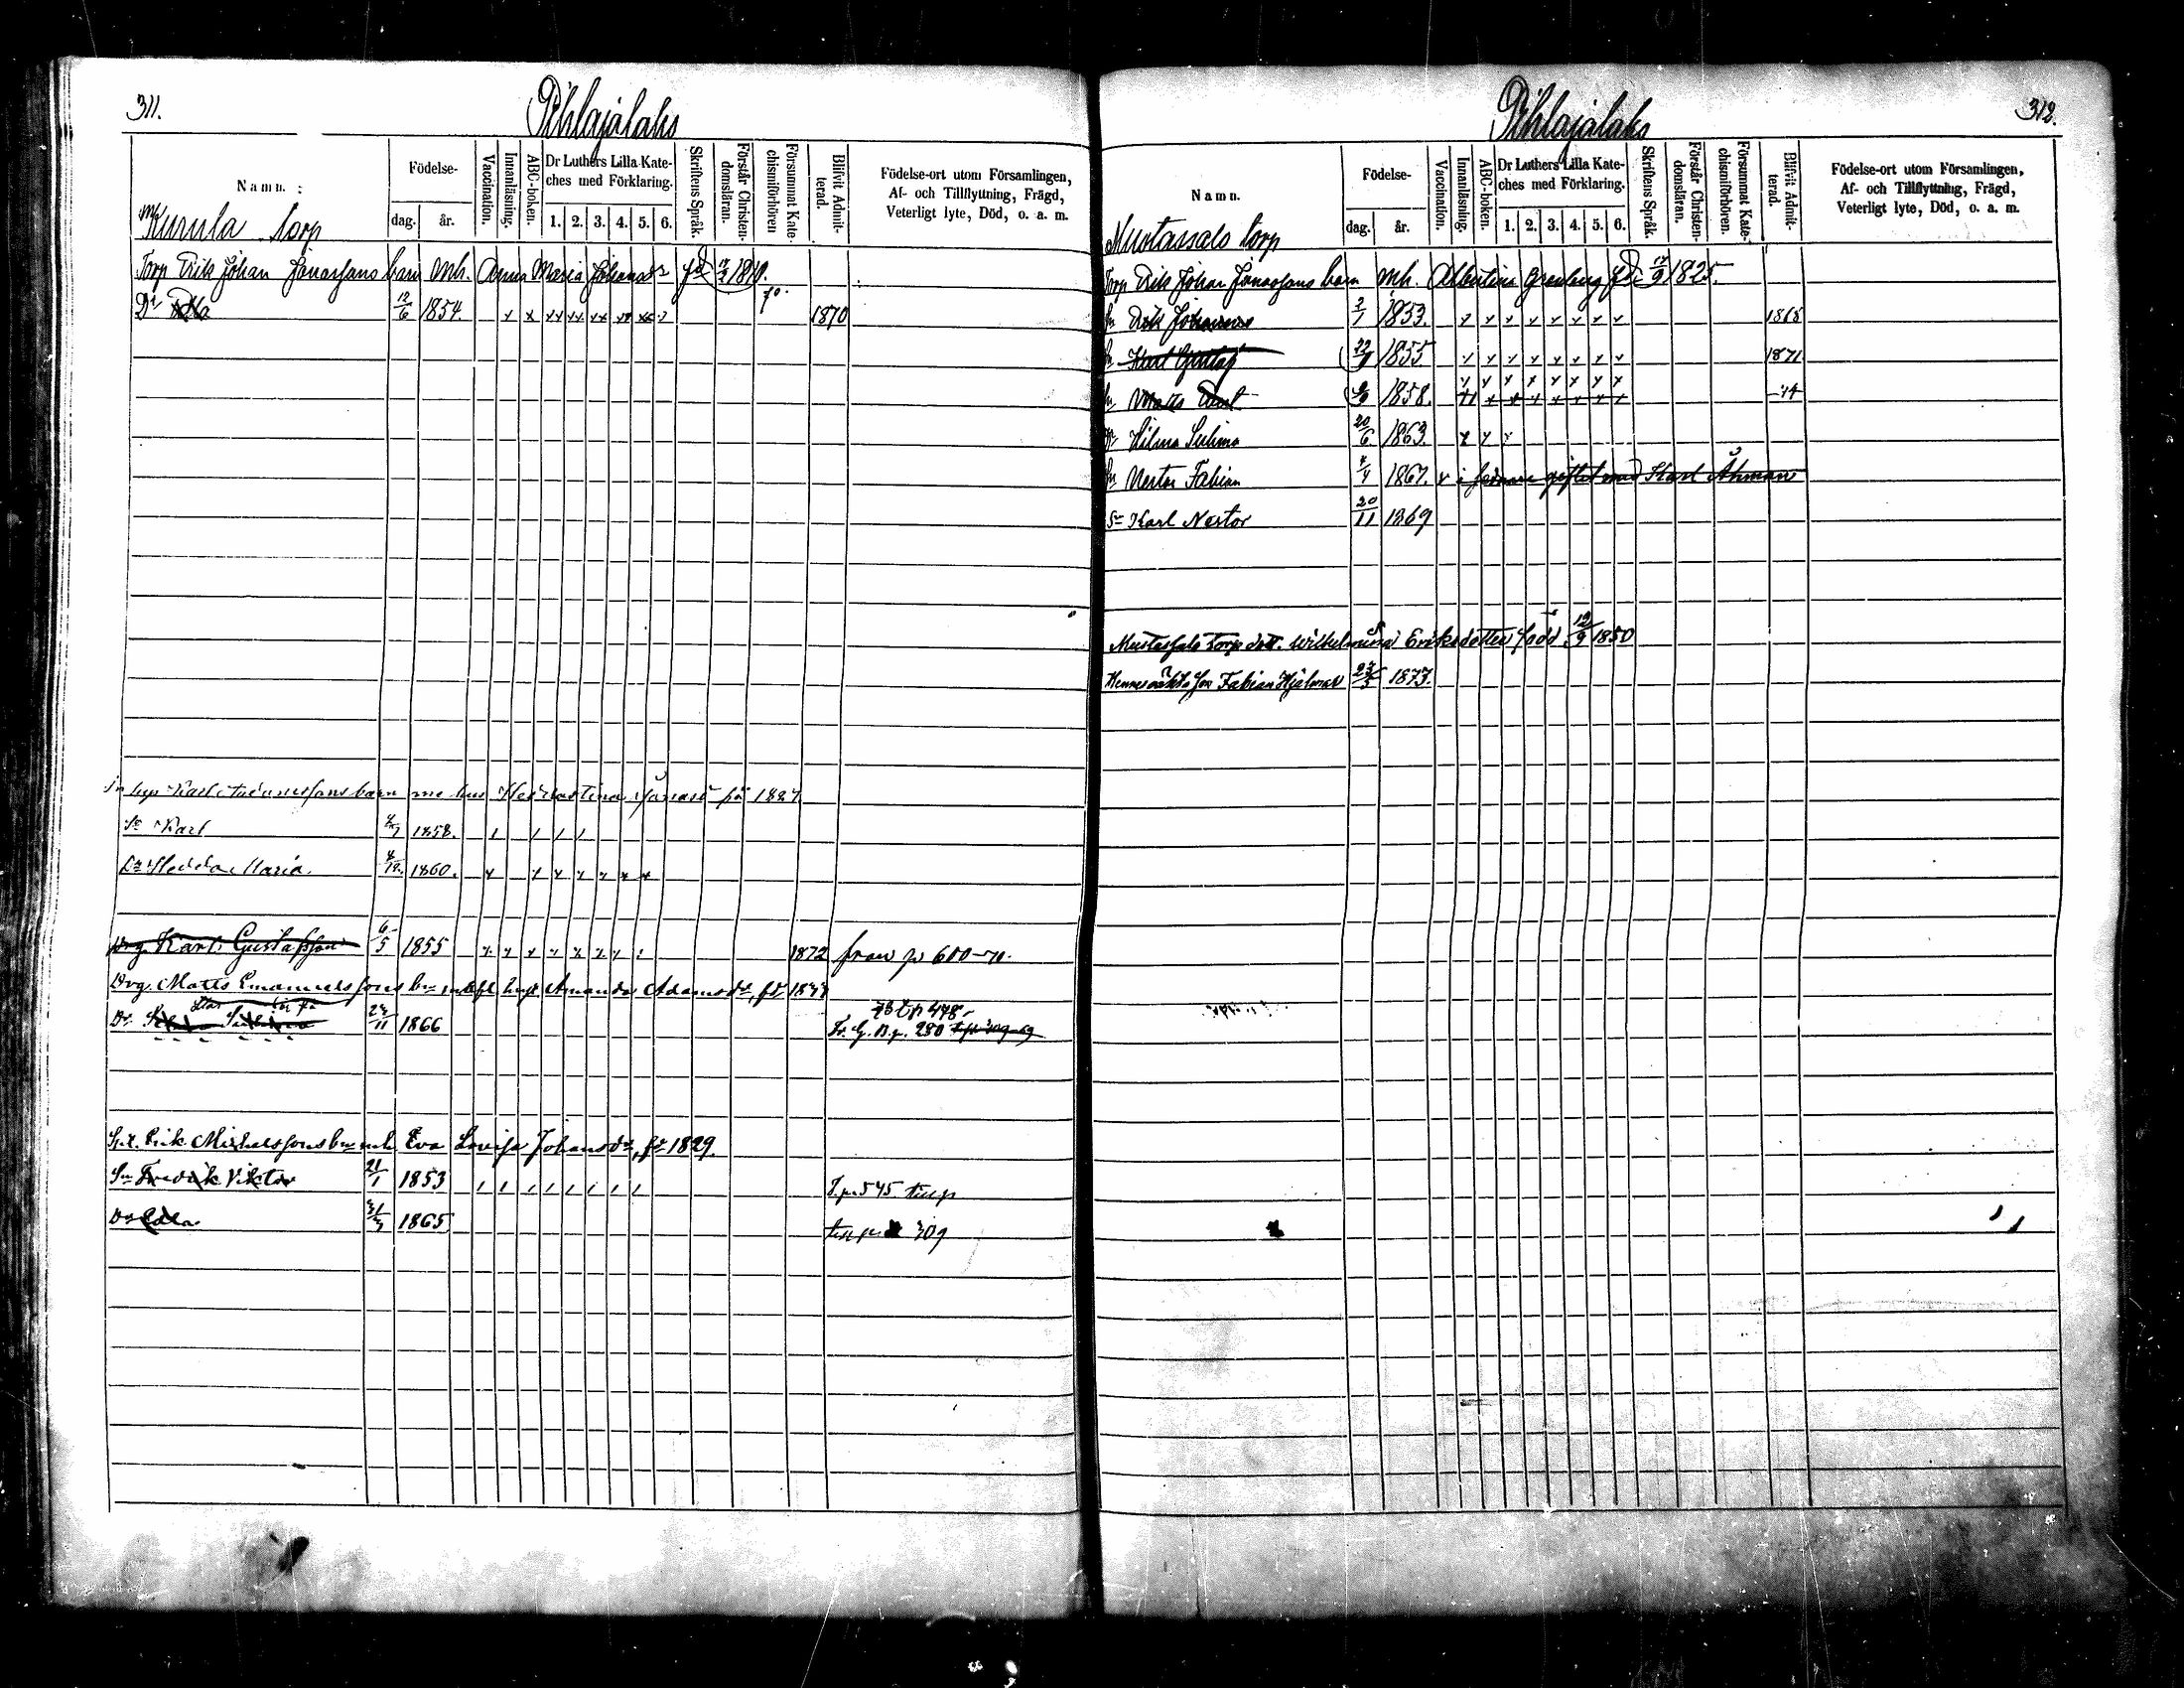 311.
Pihlajalaks
Namn.
Födelse-
dag.
år.
Vaccination.
Innanläsning.
ABC-boken.
Dr Luthers Lilla Kate-
ches med Förklaring.
1. 2. 3. 4. 5. 6.
Skriftens Språk.
Förstår Christen-
domsläran.
Försummat Kate-
chismiförhören
Blifvit Admit-
terad.
Födelse-ort utom Församlingen,
Af- och Tillflyttning, Frägd,
Veterligt lyte, Död, o. a. m.
Kurula torp
Torp Erik Johan Jonassons barn mh. Anna Maria Johansdr fd
Dr 12/6 1854. 1870
Karl 1858.
Dr Hedda Maria 4/12. 1860.
Drg. Karl Gustafsson 6/5 1855 1872 från p 600-70.
Drg. Matts Emanuelssons bn Amanda Adamsdr, fd
Dr 1866 Fr. G. B. p. 280
Erik Michelssons bn mh Eva Lovisa Johansdr, fd 1829.
Sn Fredrik Viktor 21/1 1853 T. p. 545
Dr Edla 1865 309
312.
Pihlajalaks
Namn.
Födelse-
dag.
år.
Vaccination.
Innanläsning.
ABC-boken.
Dr Luthers Lilla Kate-
ches med Förklaring.
1. 2. 3. 4. 5. 6.
Skriftens Språk.
Förstår Christen-
domsläran.
Försummat Kate-
chismiförhören.
Blifvit Admit-
terad.
Födelse-ort utom Församlingen,
Af- och Tillflyttning, Frägd,
Veterligt lyte, Död, o. a. m.
Mustassals torp
Torp Erik Johan Jonassons barn mh. Albertina Grenberg fd 1825.
Sn Erik Johannes 2/1 1853. 1868
Sn Karl Gustaf 1855 1871
Sn Matts 1858. -74
Dr Hilma Selima 20/6 1863.
Sn Nestor Fabian 1867. giftet med Karl Åhman
Sn Karl Nestor 20/11 1869
Mustassals torp dott. Wilhelmina Eriksdotter född 12/9 1850
Hennes oäkta son Fabian Hjalmar 1873.